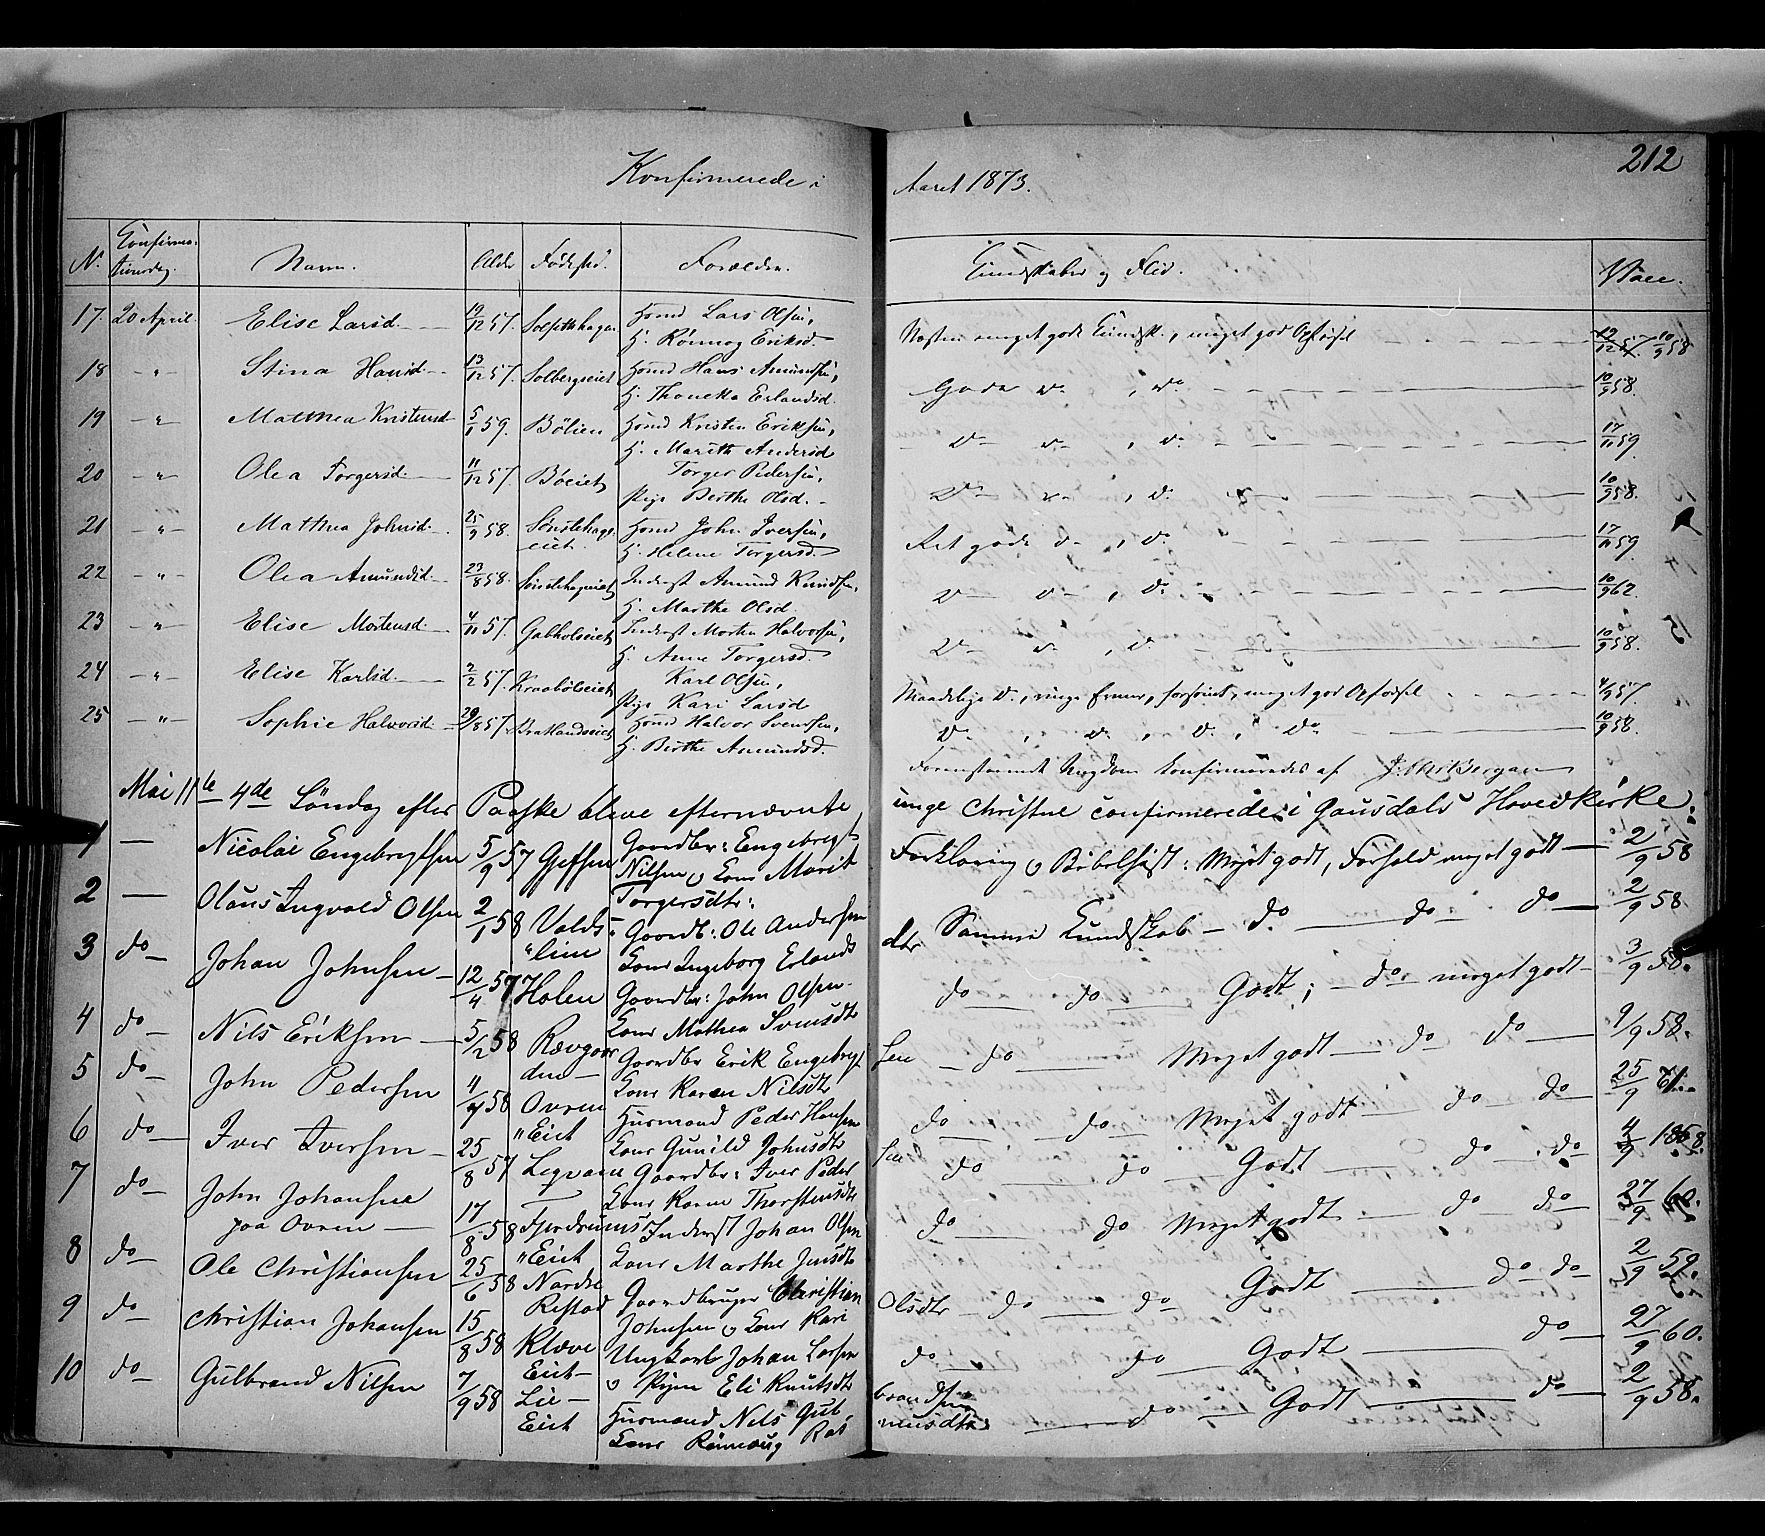 212
Konfirmerede i Aaret 1873.
N. Confirmationsdag. Navn. Alder Fødested. Forældre. Kundskaber og Flid. Vacc.
17. 20 April. Elise Larsd. 19/12 57. Husmd Lars Olsen, H. Rønnog Eriksd. Næsten meget gode Kundsk., meget god Opførsel 10/9 58
18 -„- Stina Hansd. 13/12 57. Solbergseiet Husmd Hans Amundsen, H. Thoneka Erlandsd. Gode do, do 10/9 58.
19 -„- Matthea Kristensd 5/1 59. Bølien Husmd Kristen Eriksen, H. Marith Andersd do do, do 17/11 59
20 -„- Olea Torgersd. 11/12 57. Bøeiet Torger Pedersen, Pige Berthe Olsd. do do, do 10/9 58.
21 -„- Matthea Johnsd. 25/9 58. Sønstehageeiet Husmd John Iversen, H. Helene Torgersd. Ret gode do, do 17/11 59.
22 -„- Olea Amundsd. 23/8 58. Inderst Amund Knudsen, H. Marthe Olsd. do do, do 10/9 62
23 -„- Elise Mortensd. 4/11 57. Inderst Morten Halvorsen, H. Anne Torgersd. do do, do 10/9 58.
24 -„- Elise Karlsd. 2/2 57. Kraabøleiet Karl Olsen, Pige Kari Larsd Maadelige do, ringe Evner, forsømt, meget god Opførsel 4/9 57.
25 -„- Sophie Halvorsd. 29/8 57. Husmd Halvor Svendsen, H. Birthe Amundsd. do, do, do, do 10/9 58.
Foranstaaende Ungdom konfirmeredes af
Mai 11te 4de Søndag efter Paaske bleve efternævnte unge Christne confirmerede i Gausdals Hovedkirke.
1 — Nicolai Engebregtsen 5/9 57 Gaardbr: Engebregt Nilsen & Kone Marit Torgersdtr: Forklaring & Bibelhist: Meget godt, Forhold meget godt — 2/9 58
2 — Olaus Ingvald Olsen 2/1 58 Valdsliene Gaardb: Ole Andersen Kone Ingeborg Erlandsdtr Samme Kundskab — do — do do — 2/9 58
3 do — Johan Johnsen — 12/4 57 Holen Gaardbr: John Olsen. Kone Mathea Svensdtr do do — Godt; — do meget godt — 3/9 58.
4 do — Nils Eriksen — 5/2 58 Rævgaarden — Gaardbr Erik Engebregtsen Kone Karen Nilsdtr — do — Meget godt — do do — 9/9 58.
5 do — John Pedersen 4/9 58 Ovren „Eiet Husmand Peder Hansen Kone Gunild Johnsdtr do — do — Meget godt — do do — 25/9 61.
6 do — Iver Iversen — 25/8 57 Legvam Gaardbr: Iver Pedersen Kone Karen Thorstensdtr do — do — Godt — do — do — 4/9 1858.
7 do — John Johansen paa Ovren — 17/8 58 Fjerdrums „Eiet Inderst Johan Olsen Kone Marthe Jensdtr do — do Meget godt — do do — 27/9 60.
8 do — Ole Christiansen 25/6 58 Nordre Restad Gaardbruger Christian Johnsen & Kone Kari Olsdtr — do — do — Godt — do do — 2/9 59.
9 do — Christian Johansen 15/8 58 Kleve Eiet — Ungkarl Johan Larsen & Pigen Eli Knutsdtr do — do — Godt — do — 27/9 60.
10 do — Gulbrand Nilsen 7/9 58 Lie — Eiet Husmand Nils Gulbrandsen Kone Rønnaug Rasmusdtr — do — Godt — do — 2/9 58.